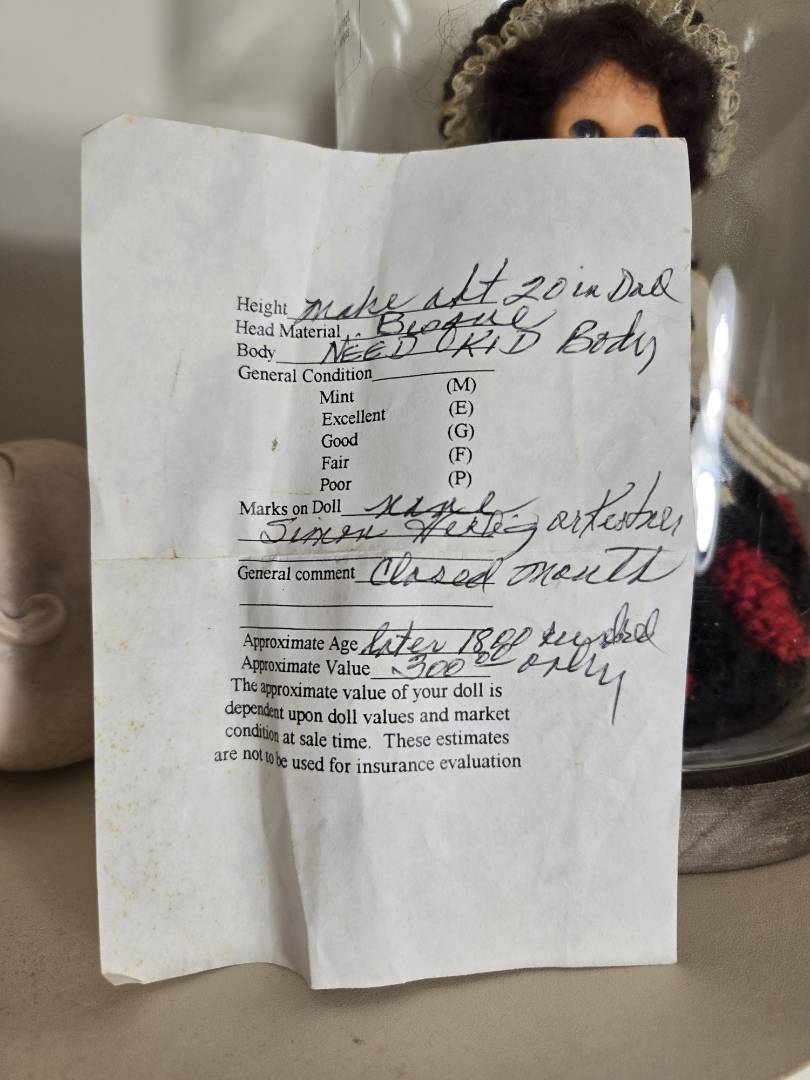 Height make abt 20 in Doll
Head Material Bisque
Body NEED KID Body
General Condition
Mint (M)
Excellent (E)
Good (G)
Fair (F)
Poor (P)
Marks on Doll none
Simon
General comment Closed mouth
Approximate Age later 1800 hundred
Approximate Value 300 00 only
The approximate value of your doll is
dependent upon doll values and market
condition at sale time. These estimates
are not to be used for insurance evaluation